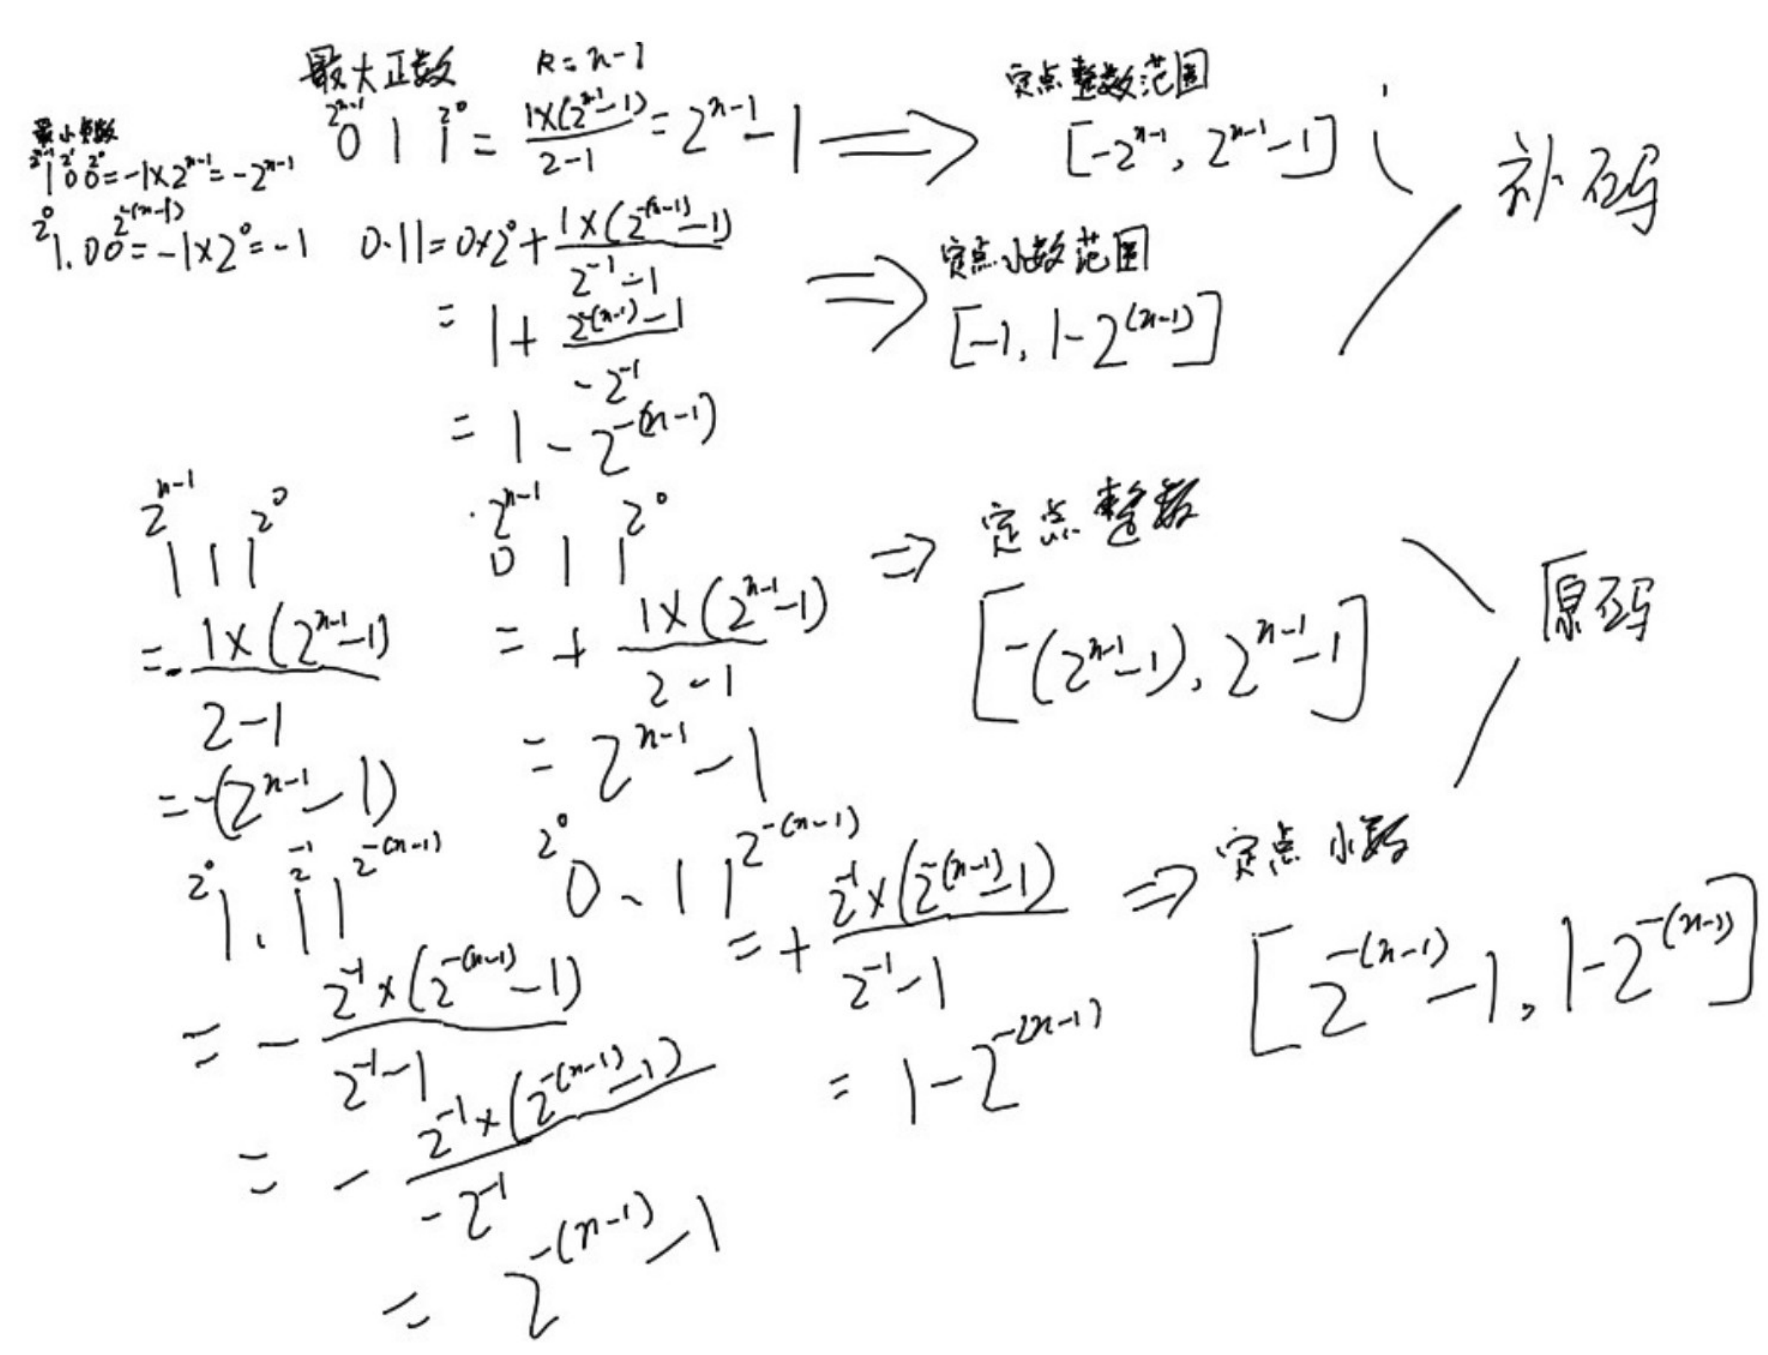 最大正数 R=n-1
2^{n-1} 2^0
0 1 1 = \frac{1×(2^{n-1}-1)}{2-1} = 2^{n-1}-1 ⟹
定点整数范围
[-2^{n-1}, 2^{n-1}-1]
补码
最小负数
2^{n-1} 2^1 2^0
1 0 0 = -1×2^{n-1} = -2^{n-1}
2^0 2^{-(n-1)}
1.00 = -1×2^0 = -1
0.11 = 0×2^0 + \frac{1×(2^{-(n-1)}-1)}{2^{-1}-1} ⟹
= 1 + \frac{2^{-(n-1)}-1}{-2^{-1}}
= 1 - 2^{-(n-1)}
定点小数范围
[-1, 1-2^{(n-1)}]
2^{n-1} 2^0
1 1 1
= -\frac{1×(2^{n-1}-1)}{2-1}
= -(2^{n-1}-1)
2^{n-1} 2^0
0 1 1
= +\frac{1×(2^{n-1}-1)}{2-1}
= 2^{n-1}-1
⇒ 定点整数
[-(2^{n-1}-1), 2^{n-1}-1]
原码
2^0 2^{-1} 2^{-(n-1)}
1.11
= -\frac{2^{-1}×(2^{-(n-1)}-1)}{2^{-1}-1}
= -\frac{2^{-1}×(2^{-(n-1)}-1)}{-2^{-1}}
= 2^{-(n-1)}-1
2^0 2^{-(n-1)}
0.11
= +\frac{2^{-1}×(2^{-(n-1)}-1)}{2^{-1}-1}
= 1-2^{-(n-1)}
⇒ 定点小数
[2^{-(n-1)}-1, 1-2^{-(n-1)}]